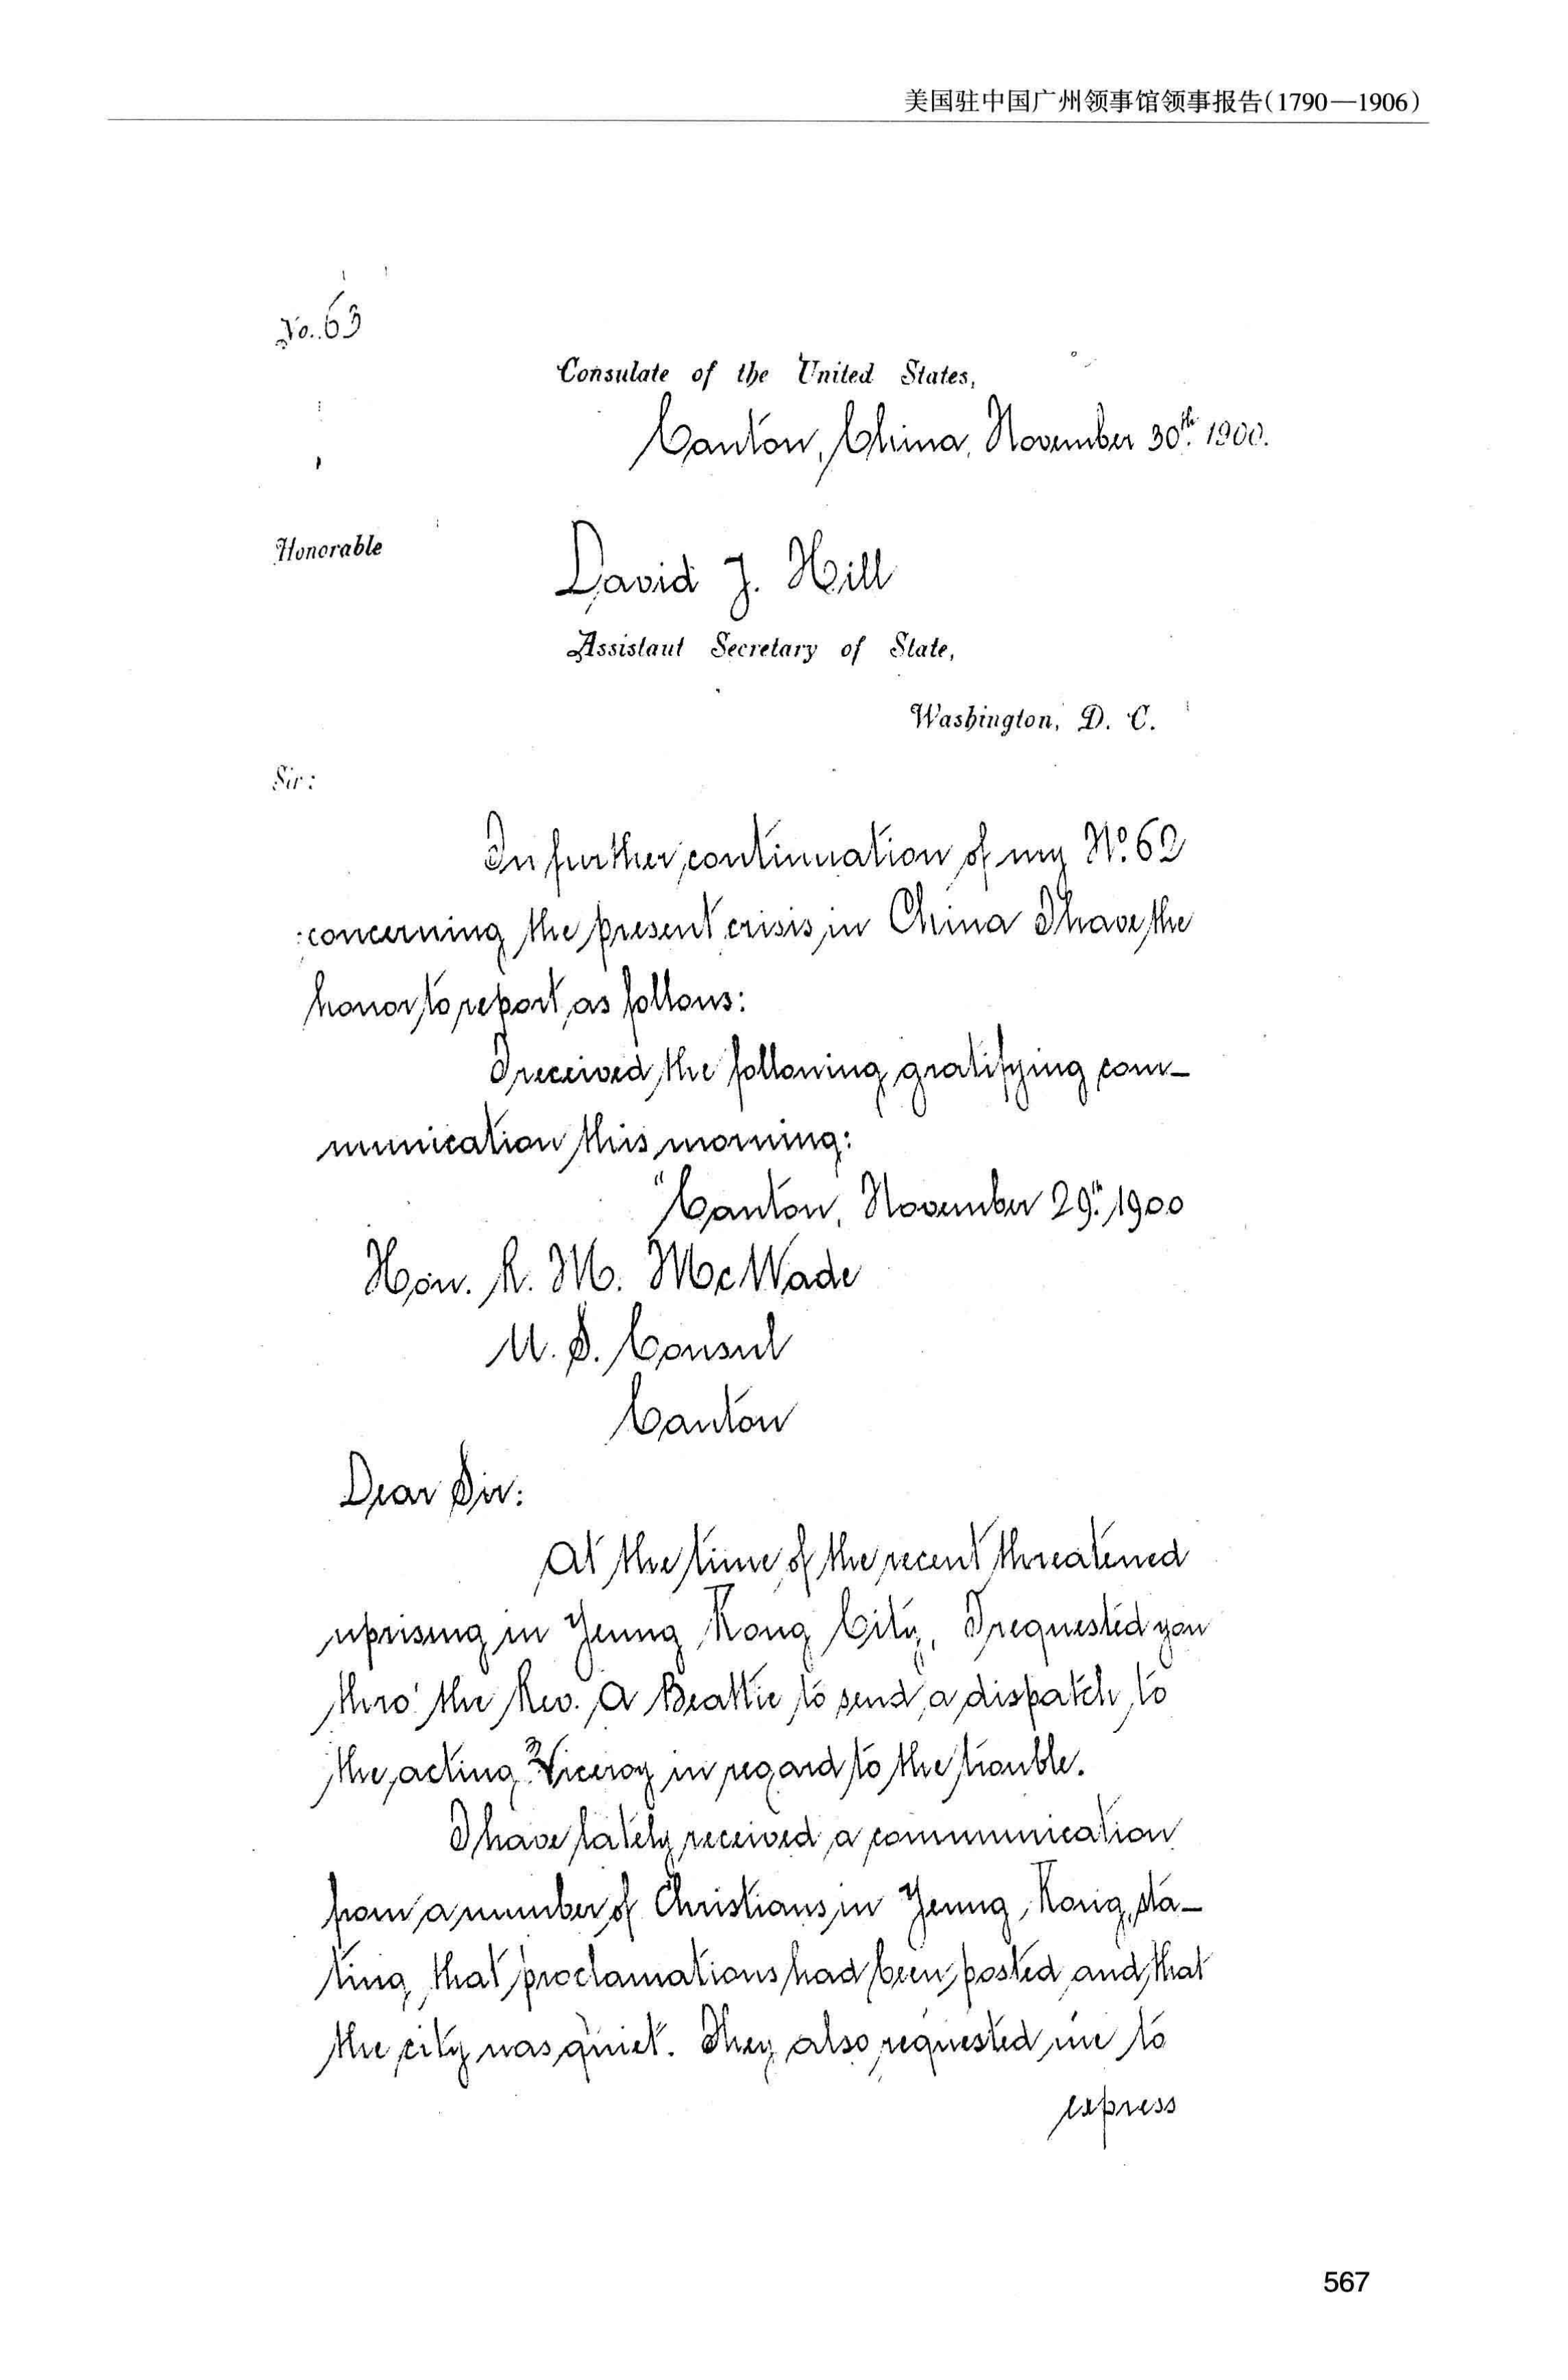 美国驻中国广州领事馆领事报告(1790—1906)
No. 63
Consulate of the United States,
Canton, China, November 30th. 1900.
Honorable
David J. Hill
Assistant Secretary of State,
Washington, D. C.
Sir:
In further continuation of my No. 62
concerning the present crisis in China I have the
honor to report as follows:
I received the following gratifying com-
munication this morning:
"Canton, November 29th, 1900
Hon. R. M. McWade
U. S. Consul
Canton
Dear Sir:
At the time of the recent threatened
uprising in Yeung Kong City, I requested you
thro' the Rev. A Beattie to send a dispatch to
the acting Viceroy in regard to the trouble.
I have lately received a communication
from a number of Christians in Yeung Kong, sta-
ting that proclamations had been posted and that
the city was quiet. They also requested me to
express
567